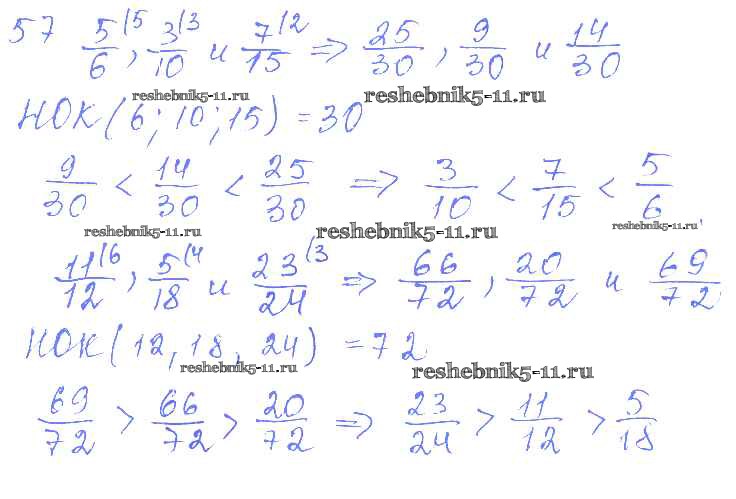 57 5/6 (5, 3/10 (3 и 7/15 (2 => 25/30, 9/30 и 14/30
reshebnik5-11.ru reshebnik5-11.ru
НОК(6; 10; 15) = 30
9/30 < 14/30 < 25/30 => 3/10 < 7/15 < 5/6
reshebnik5-11.ru reshebnik5-11.ru reshebnik5-11.ru
11/12 (6, 5/18 (4 и 23/24 (3 => 66/72, 20/72 и 69/72
НОК(12, 18, 24) = 72
reshebnik5-11.ru reshebnik5-11.ru
69/72 > 66/72 > 20/72 => 23/24 > 11/12 > 5/18